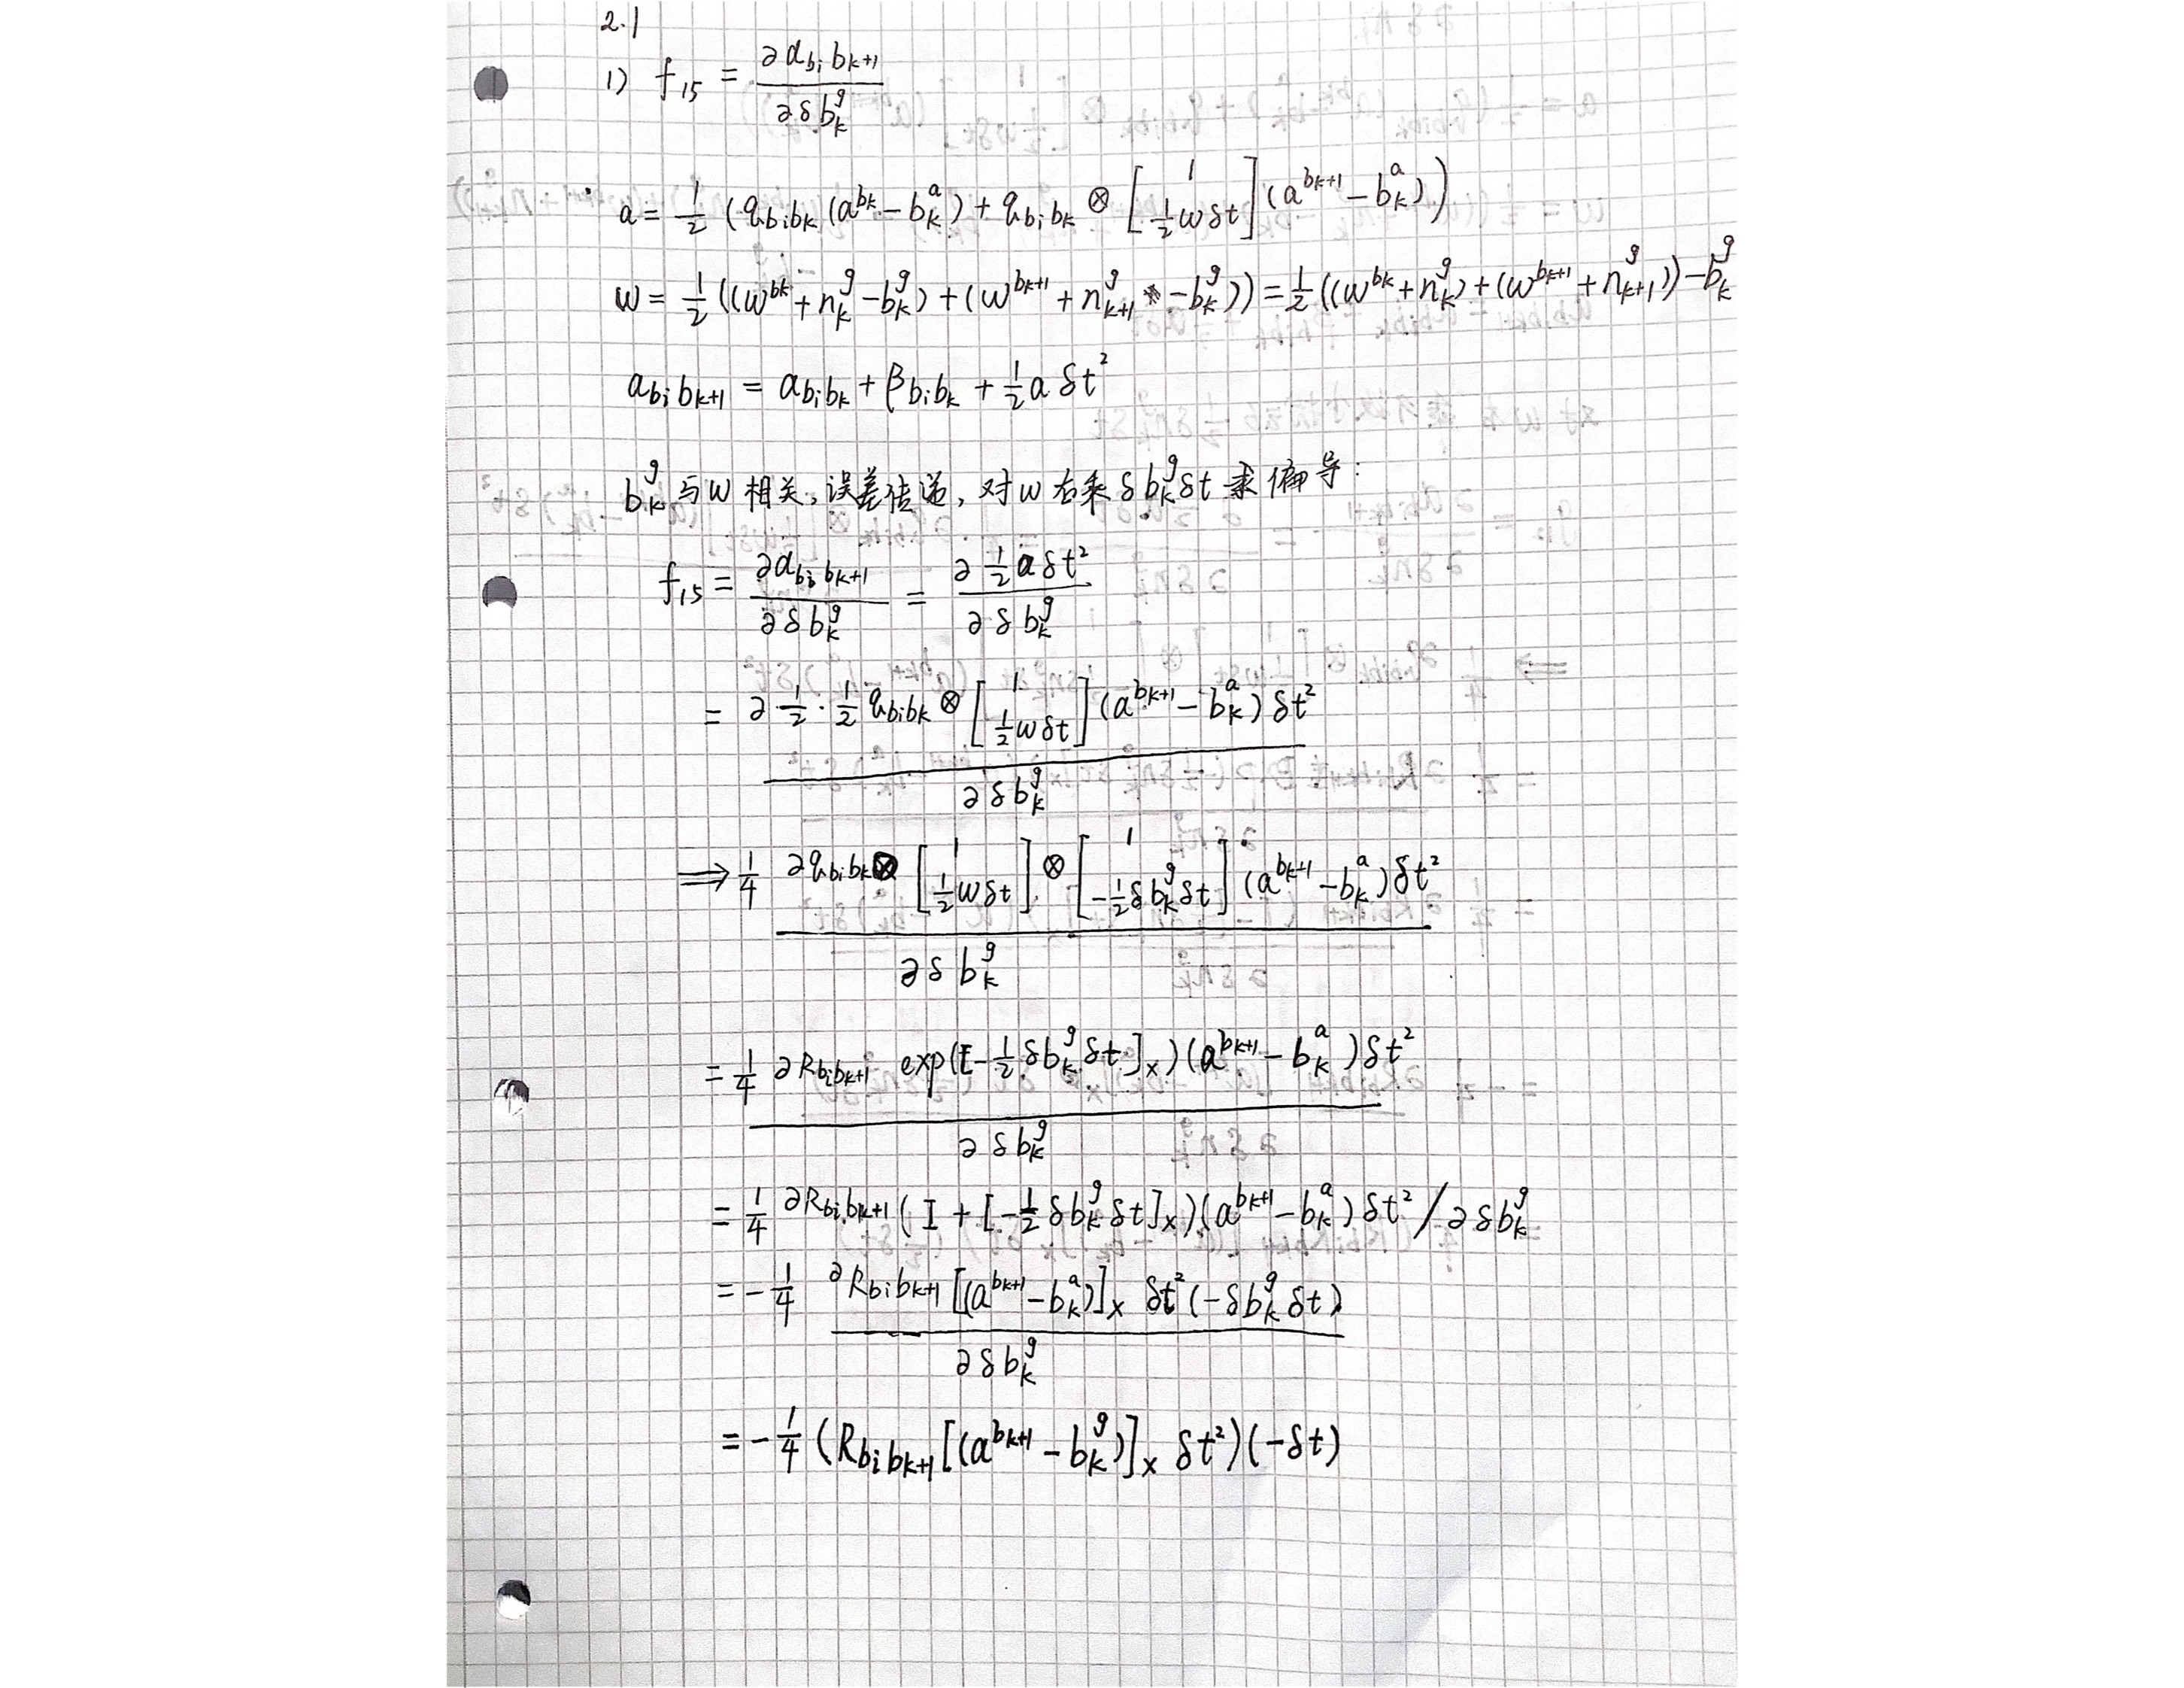 2.1
1) f₁₅ = ∂α_{b_i b_{k+1}} / ∂δb_k^g
a = 1/2 (q_{b_i b_k} (a^{b_k} - b_k^a) + q_{b_i b_k} ⊗ [1; 1/2 ω δt] (a^{b_{k+1}} - b_k^a))
ω = 1/2 ((ω^{b_k} + n_k^g - b_k^g) + (ω^{b_{k+1}} + n_{k+1}^g - b_k^g)) = 1/2 ((ω^{b_k} + n_k^g) + (ω^{b_{k+1}} + n_{k+1}^g)) - b_k^g
α_{b_i b_{k+1}} = α_{b_i b_k} + β_{b_i b_k} + 1/2 a δt²
b_k^g 与 ω 相关, 误差传递, 对 ω 右乘 δb_k^g δt 求偏导:
f₁₅ = ∂α_{b_i b_{k+1}} / ∂δb_k^g = ∂ 1/2 a δt² / ∂δb_k^g
= ∂ 1/2 · 1/2 q_{b_i b_k} ⊗ [1; 1/2 ω δt] (a^{b_{k+1}} - b_k^a) δt² / ∂δb_k^g
⟹ 1/4 ∂q_{b_i b_k} ⊗ [1; 1/2 ω δt] ⊗ [1; -1/2 δb_k^g δt] (a^{b_{k+1}} - b_k^a) δt² / ∂δb_k^g
= 1/4 ∂R_{b_i b_{k+1}} exp([-1/2 δb_k^g δt]_×) (a^{b_{k+1}} - b_k^a) δt² / ∂δb_k^g
= 1/4 ∂R_{b_i b_{k+1}} (I + [-1/2 δb_k^g δt]_×) (a^{b_{k+1}} - b_k^a) δt² / ∂δb_k^g
= -1/4 ∂R_{b_i b_{k+1}} [(a^{b_{k+1}} - b_k^a)]_× δt² (-δb_k^g δt) / ∂δb_k^g
= -1/4 (R_{b_i b_{k+1}} [(a^{b_{k+1}} - b_k^g)]_× δt²) (-δt)